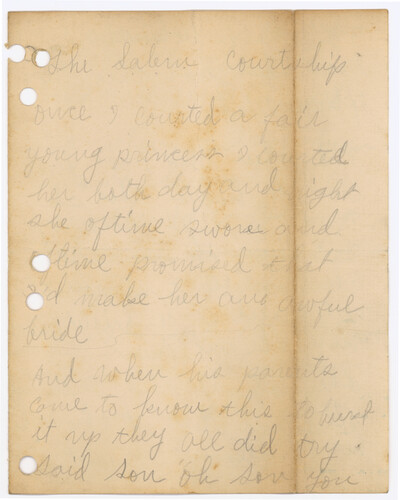 The Salem Courtship
Once I courted a fair
young princess I courted
her both day and night
she oftime swore and
oftime promised that
I'd make her an awful
bride
And when his parents
came to know this to bust
it up they all did try
Said son oh son you